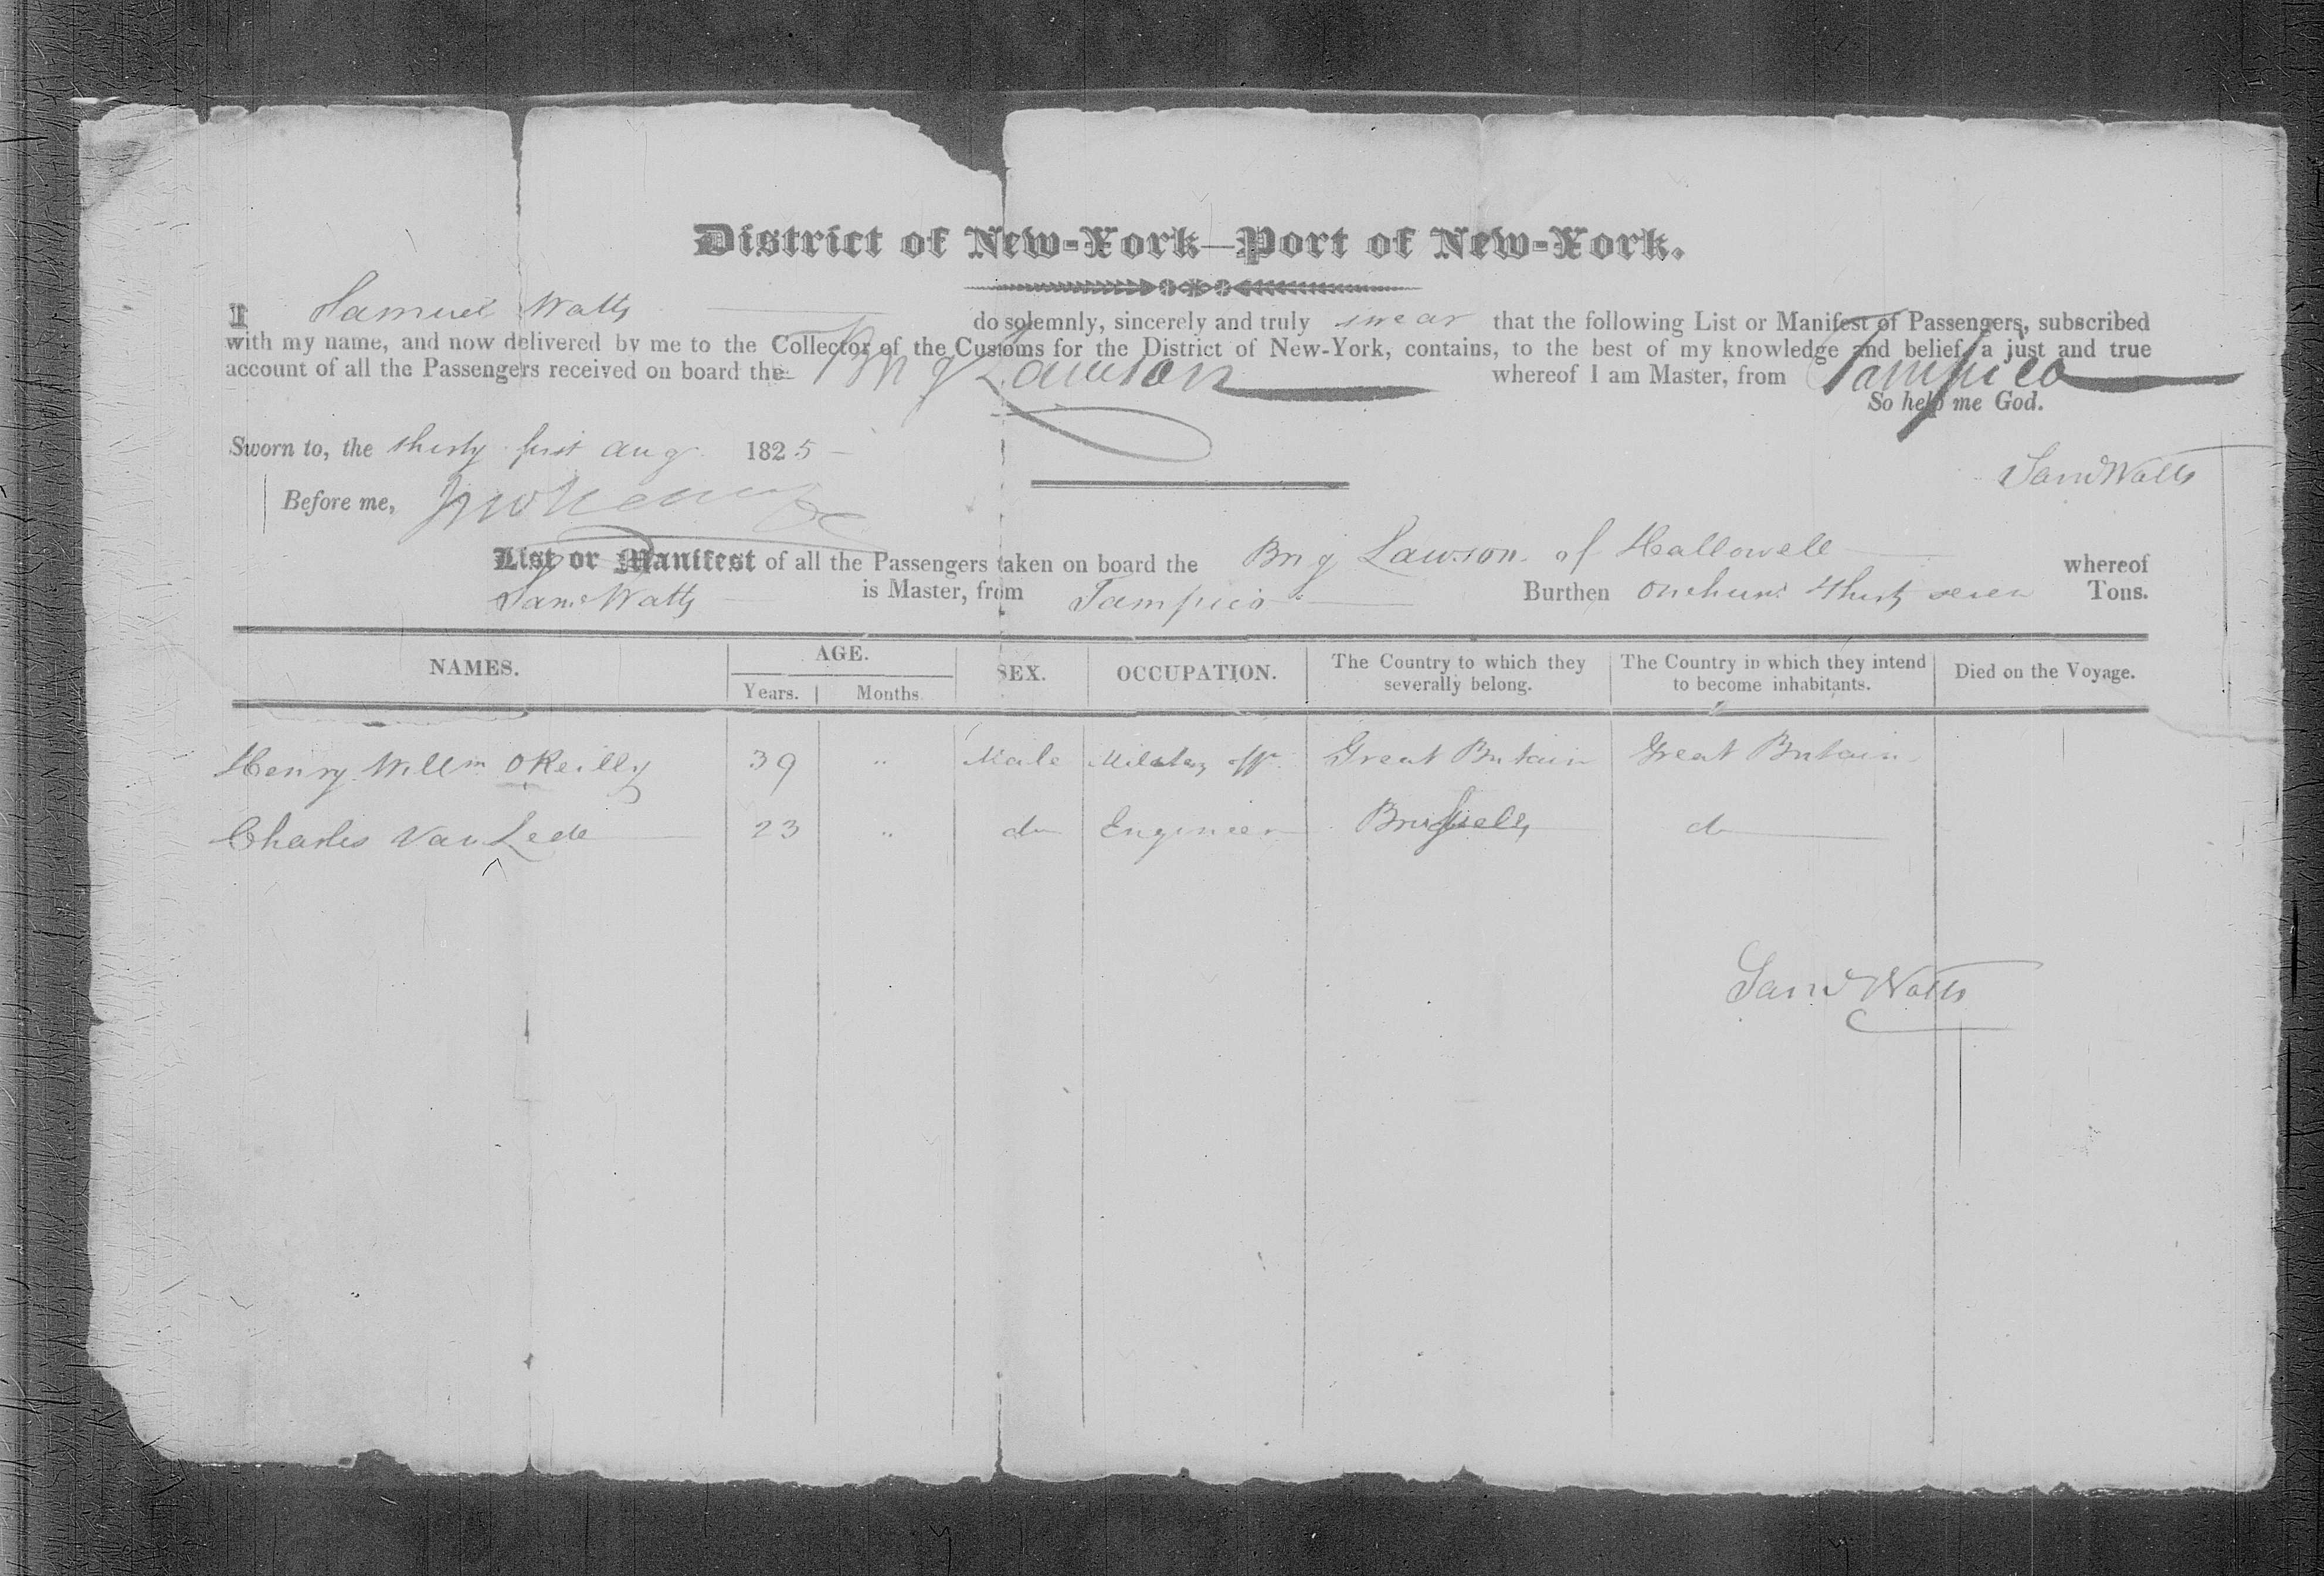 District of New-York—Port of New-York.
I Samuel Watts do solemnly, sincerely and truly swear that the following List or Manifest of Passengers, subscribed
with my name, and now delivered by me to the Collector of the Customs for the District of New-York, contains, to the best of my knowledge and belief, a just and true
account of all the Passengers received on board the Brig Lawson whereof I am Master, from Tampico
So help me God.
Sworn to, the thirty first aug 1825
Saml Watts
Before me,
List or Manifest of all the Passengers taken on board the Brig Lawson of Hallowell whereof
Saml Watts is Master, from Tampico Burthen one hund thirty seven Tons.
NAMES. AGE. Years. Months. SEX. OCCUPATION. The Country to which they severally belong. The Country in which they intend to become inhabitants. Died on the Voyage.
Henry Willm OReilly 39 " Male Military offr Great Britain Great Britain
Charles Van Lede 23 " do Engineer Brussells do
Saml Watts